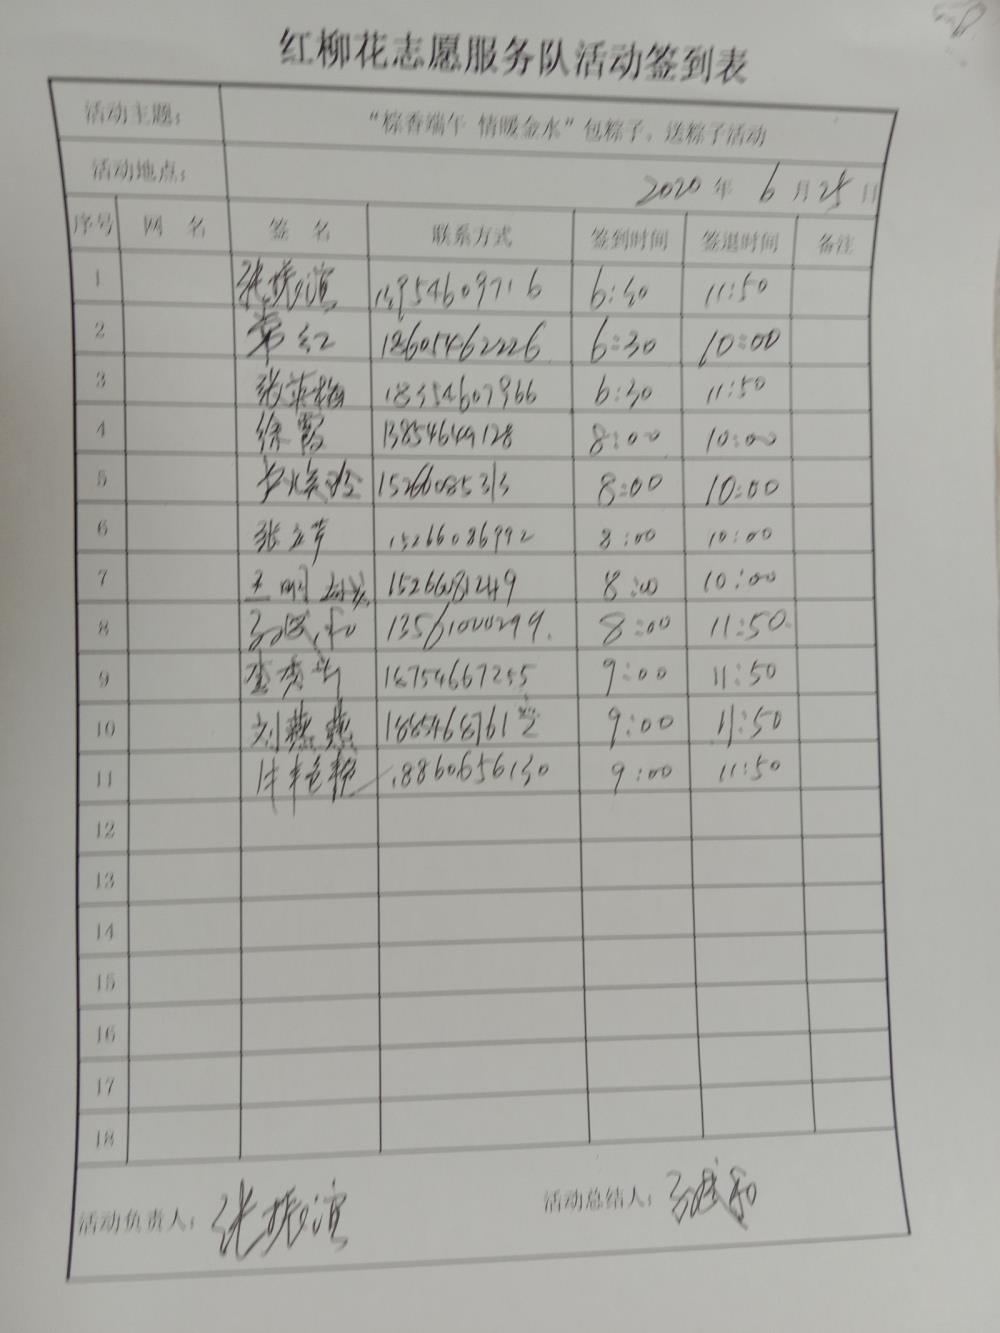 红柳花志愿服务队活动签到表
活动主题： “粽香端午 情暖金水”包粽子、送粽子活动
活动地点： 2020 年 6 月 25 日
序号 网 名 签 名 联系方式 签到时间 签退时间 备注
1 张振滨 6:30 11:50
2 常红 18605462226 6:30 10:00
3 张英梅 18354607966 6:30 11:50
4 徐霞 13854649128 8:00 10:00
5 15266085313 8:00 10:00
6 张立芹 15266086992 8:00 10:00
7 王明 15266081249 8:00 10:00
8 13561000299. 8:00 11:50
9 18754667255 9:00 11:50
10 刘燕燕 9:00 11:50
11 18860656130 9:00 11:50
12
13
14
15
16
17
18
活动负责人： 张振滨 活动总结人：